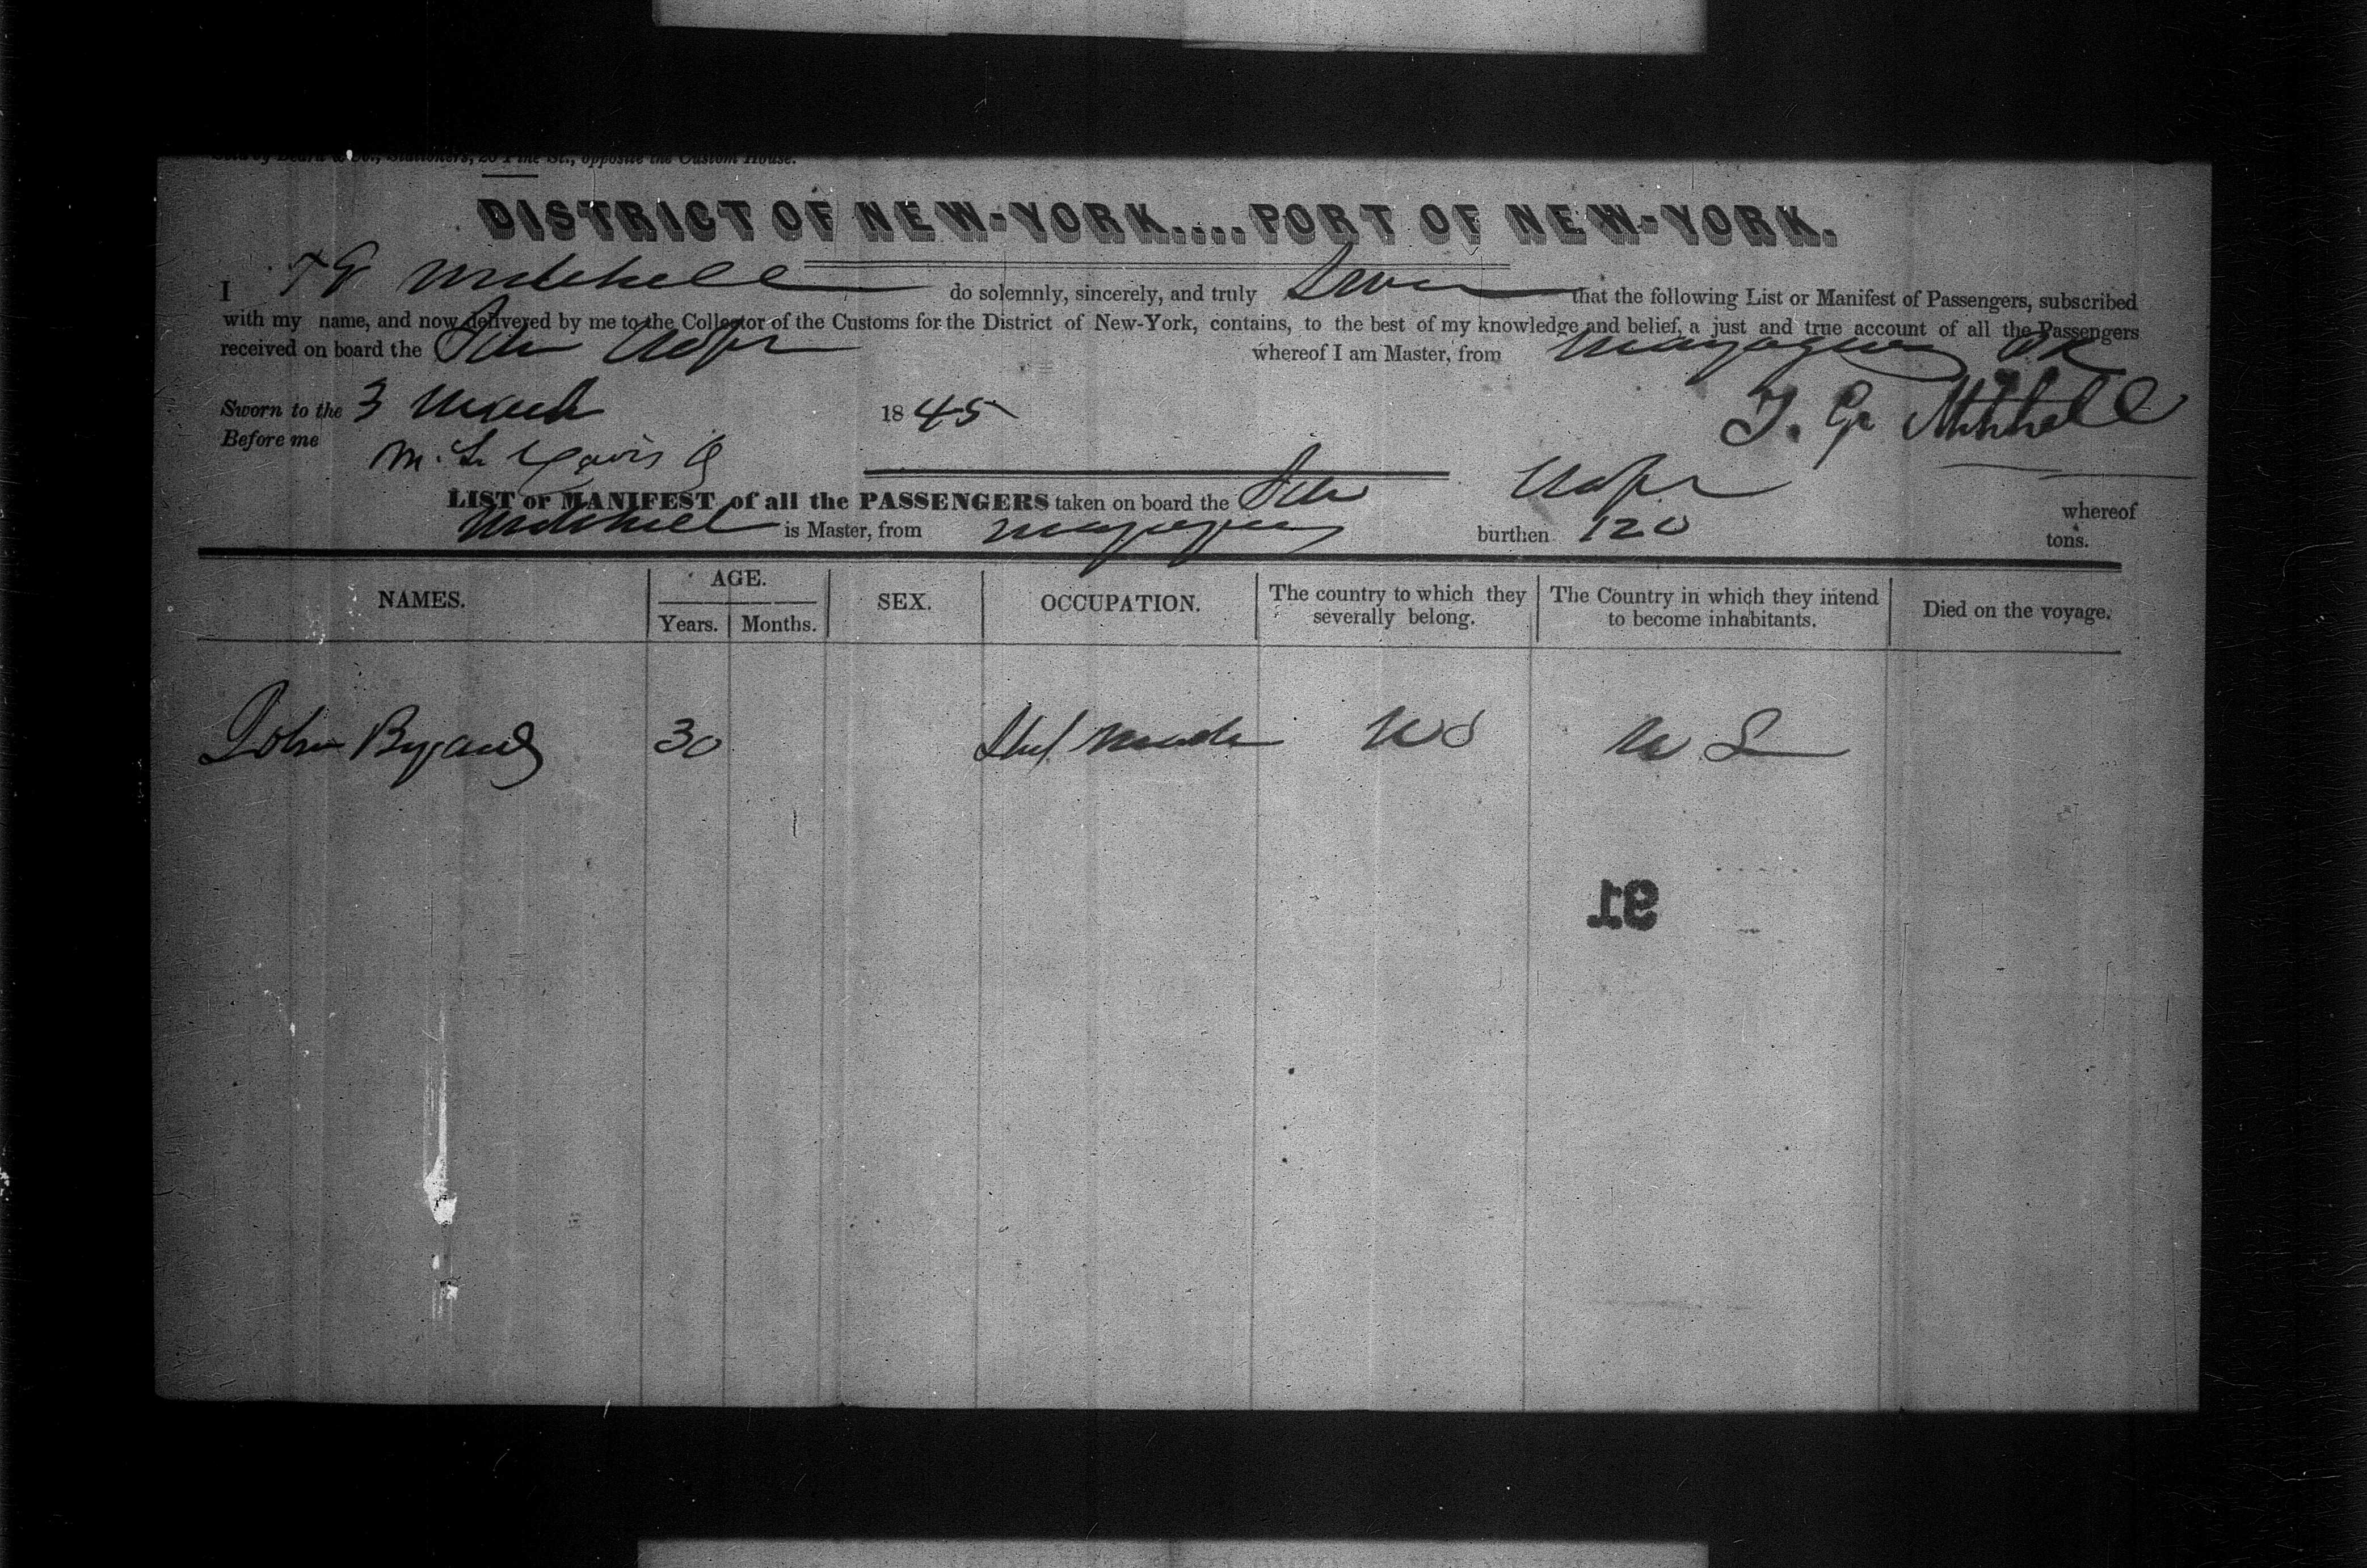 Sold by Beard & Co., Stationers, 20 Pine St., opposite the Custom House.
DISTRICT OF NEW-YORK....PORT OF NEW-YORK.
I T G Mitchell do solemnly, sincerely, and truly Swear that the following List or Manifest of Passengers, subscribed
with my name, and now delivered by me to the Collector of the Customs for the District of New-York, contains, to the best of my knowledge and belief, a just and true account of all the Passengers
received on board the Schr Hope whereof I am Master, from Mayaguez P.R
Sworn to the 3 March 1845 T. G. Mitchell
Before me
LIST or MANIFEST of all the PASSENGERS taken on board the Schr Hope whereof
Mitchell is Master, from Mayaguez burthen 120 tons.
NAMES. AGE. SEX. OCCUPATION. The country to which they severally belong. The Country in which they intend to become inhabitants. Died on the voyage.
Years. Months.
John 30 U S U S
91